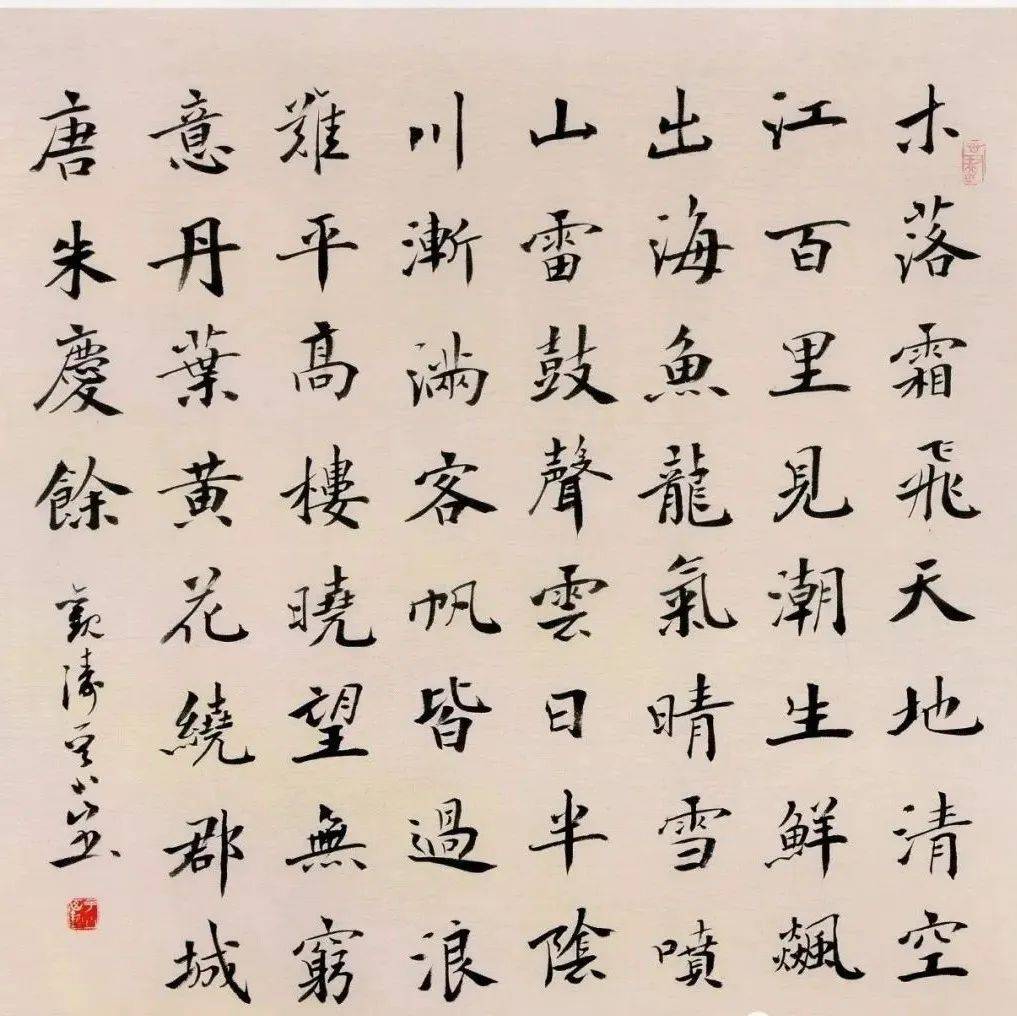 木落霜飛天地清空
江百里見潮生鮮飈
出海魚龍氣晴雪噴
山雷鼓聲雲日半陰
川漸滿客帆皆過浪
難平高樓曉望無窮
意丹葉黄花繞郡城
唐朱慶餘 觀濤